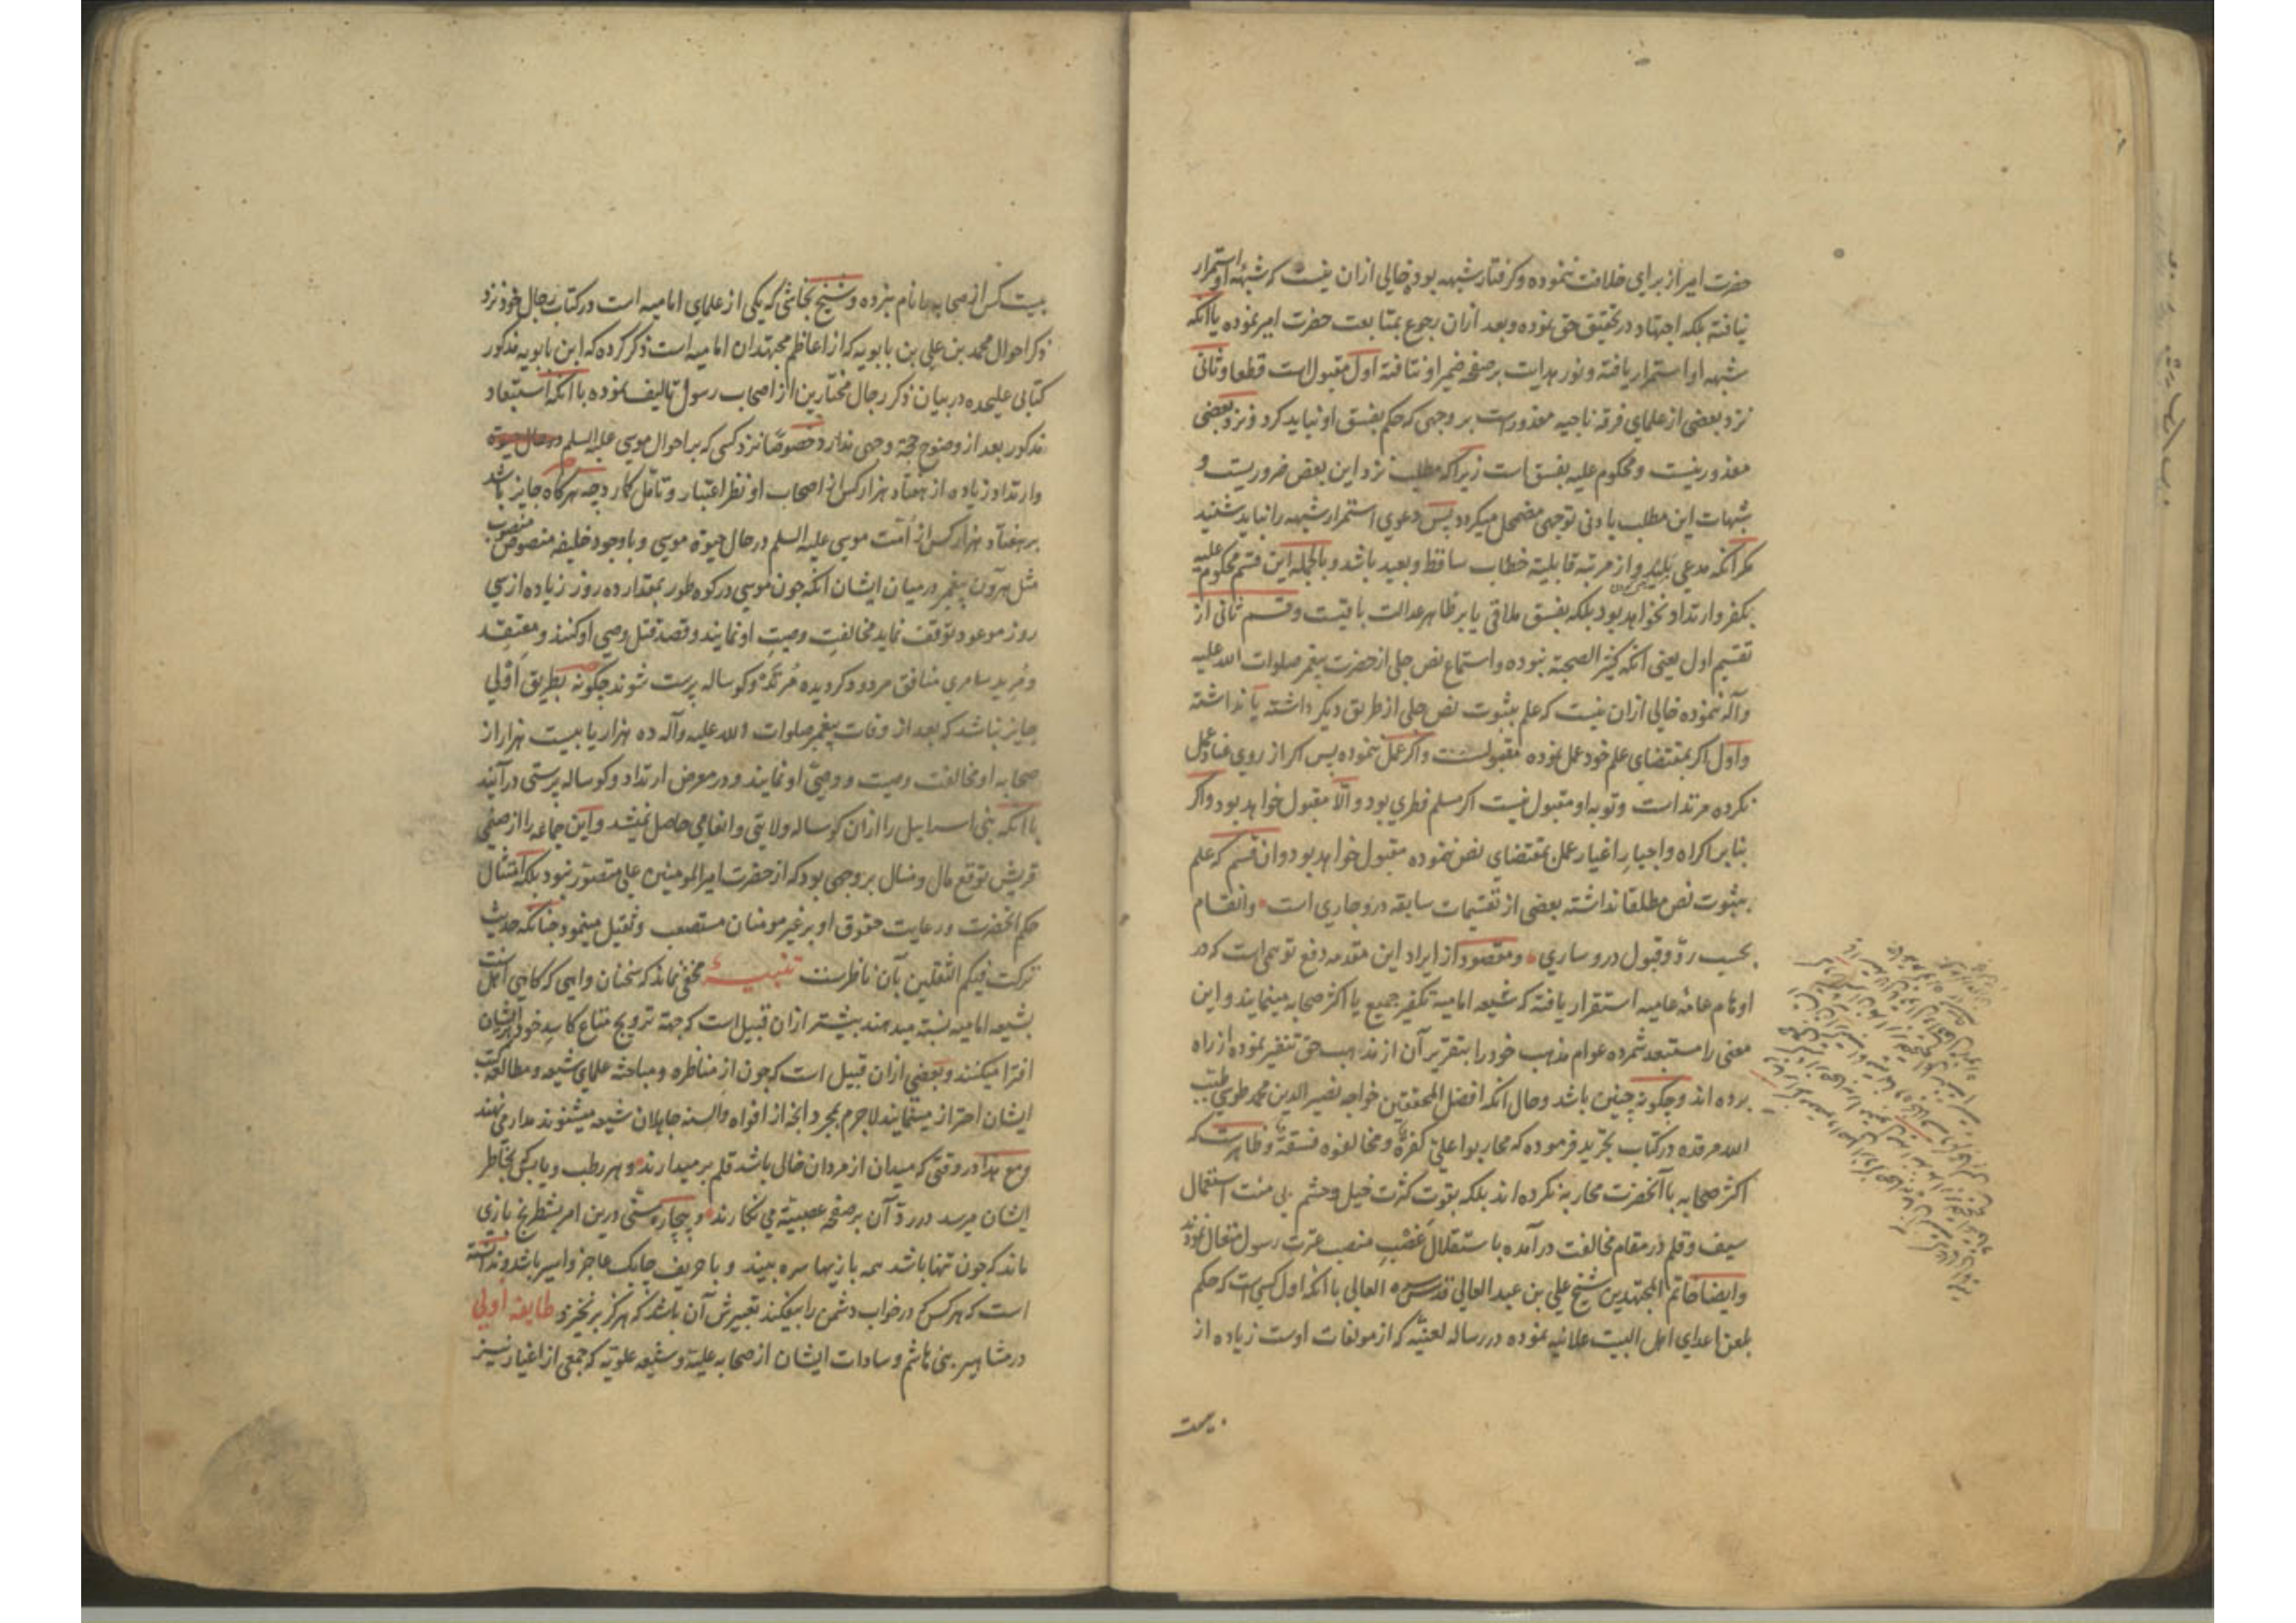 حضرت امیر از برای خلافت ننموده و کرفتار شبهه بوده خالی ازان نیست که شبهه او استمرار
نیافته بلکه اجتهاد در تحقیق حق نموده و بعد ازان رجوع بمتابعت حضرت امیر نموده یا انکه
شبهه او استمرار یافته و نور هدایت بر صفحه ضمیر او نتافته اول مقبول است قطعا و ثانی
نزد بعضی از علمای فرقه ناجیه معذورست بر وجهی که حکم بفسق او نباید کرد و نزد بعضی
معذور نیست و محکوم علیه بفسق است زیرا که مطلب نزد این بعض ضروریست و
شبهات این مطلب بادنی توجهی مضمحل میکردد پس دعوی استمرار شبهه را نباید شنید
مکر انکه مدعی بلید و از مرتبه قابلیة خطاب ساقط و بعید باشد و بالجمله این قسم محکوم علیه
بکفر و ارتداد نخواهد بود بلکه بفسق ملاقی یا بر ظاهر عدالت باقیست و قسم ثانی از
تقسیم اول یعنی انکه کثیر الصحبة نبوده و استماع نص جلی از حضرت پیغمبر صلوات الله علیه
وآله ننموده خالی ازان نیست که علم بثبوت نص جلی از طریق دیکر داشته یا نداشته
و اول اکر بمقتضای علم خود عمل نموده مقبولست و اکر عمل ننموده پس اکر از روی عناد عمل
نکرده مرتد است و توبه او مقبول نیست اکر مسلم فطری بود والّا مقبول خواهد بود و اکر
بنابر اکراه و اجبار اغیار عمل بمقتضای نص ننموده مقبول خواهد بود و ان قسم که علم
بثبوت نص مطلقا نداشته بعضی از تقسیمات سابقه درو جاری است و انقسام
بحسب ردّ و قبول درو ساری و مقصود از ایراد این مقدمه دفع توهمی است که در
اوهام عامّه عامیه استقرار یافته که شیعه امامیه تکفیر جمیع یا اکثر صحابه مینمایند و این
معنی را مستبعد شمرده عوام مذهب خود را بتقریر آن از مذاهب حق تنفیر نموده از راه
برده اند و چکونه چنین باشد و حال انکه افضل المحققین خواجه نصیر الدین محمد طوسی طیّب
الله مرقده در کتاب تجرید فرموده که محاربوا علیّ کفرة و مخالفوه فسقة و ظاهرست که
اکثر صحابه با آنحضرت محاربه نکرده اند بلکه بقوت کثرت خیل و حشم بی منت استعمال
سیف و قلم در مقام مخالفت درآمده باستقلال غصب منصب عترت رسول متعال نمودند
و ایضا خاتم المجتهدین شیخ علی بن عبد العالی قدس سره العالی با انکه اول کسی است که حکم
بلعن اعدای اهل البیت علانیه نموده در رساله لعنیّه که از مولفات اوست زیاده از
بیست
بیست کس از صحابه را نام نبرده و شیخ نجاشی که یکی از علمای امامیه است در کتاب رجال خود نزد
ذکر احوال محمد بن علی بن بابویه که از اعاظم مجتهدان امامیه است ذکر کرده که ابن بابویه مذکور
کتابی علیحده در بیان ذکر رجال مختارین از اصحاب رسول تالیف نموده با انکه استبعاد
مذکور بعد از وضوح حجة وجهی ندارد خصوصًا نزد کسی که بر احوال موسی علیه السلم در حال حیوة
و ارتداد زیاده از هفتاد هزار کس از اصحاب او نظر اعتبار و تامل کمارد چه هرکاه جایز باشد
بر هفتاد هزار کس از امت موسی علیه السلم در حال حیوة موسی و باوجود خلیفه منصوص منصوب
مثل هرون پیغمبر در میان ایشان انکه چون موسی در کوه طور بمقدار ده روز زیاده از سی
روز موعود توقف نماید مخالفت وصیت او نمایند و قصد قتل وصی او کنند و معتقد
و مرید سامری منافق مردود کردیده مرتدّ و کوساله پرست شوند چکونه بطریق اولی
جایز نباشد که بعد از وفات پیغمبر صلوات الله علیه وآله ده هزار یا بیست هزار از
صحابه او مخالفت وصیت و وصیّ او نمایند و در معرض ارتداد و کوساله پرستی درآیند
با انکه بنی اسراییل را ازان کوساله ولایتی و انعامی حاصل نمیشد و این جماعه را از صنمی
قریش توقع مال و منال بر وجهی بود که از حضرت امیر المومنین علی متصوّر نبود بلکه امتثال
حکم انحضرت و رعایت حقوق او بر غیر مومنان مستصعب و ثقیل مینمود چنانکه حدیث
ترکت فیکم الثقلین بآن ناظرست تنبیه مخفی نماند که سخنان واهی که کاهی اهل سنت
بشیعه امامیه نسبة میدهند بیشتر ازان قبیل است که جهة ترویج متاع کاسد خود بر ایشان
افترا میکنند و بعضی ازان قبیل است که چون از مناظره و مباحثه علمای شیعه و مطالعه کتب
ایشان احتراز مینمایند لاجرم بمجرد انچه از افواه و السنه جاهلان شیعه میشنوند مدار می نهند
و مع هذا در وقتی که میدان از مردان خالی باشد قلم بر میدارند و هر رطب و یابسی که بخاطر
ایشان میرسد در ردّ آن بر صفحه عصبیّة می نکارند و بیچاره سنّی درین امر بشطرنج بازی
ماند که چون تنها باشد همه بازیها سره بیند و با حریف چابک عاجز و اسیر باشد و ندانسته
است که هر کس که در خواب دشمن را بیفکند تعبیرش آن باشد که هرکز برنخیزد طایفه اولی
در مشاهیر بنی هاشم و سادات ایشان از صحابه علیّه و شیعه علویّه که جمعی از اغیار نیز